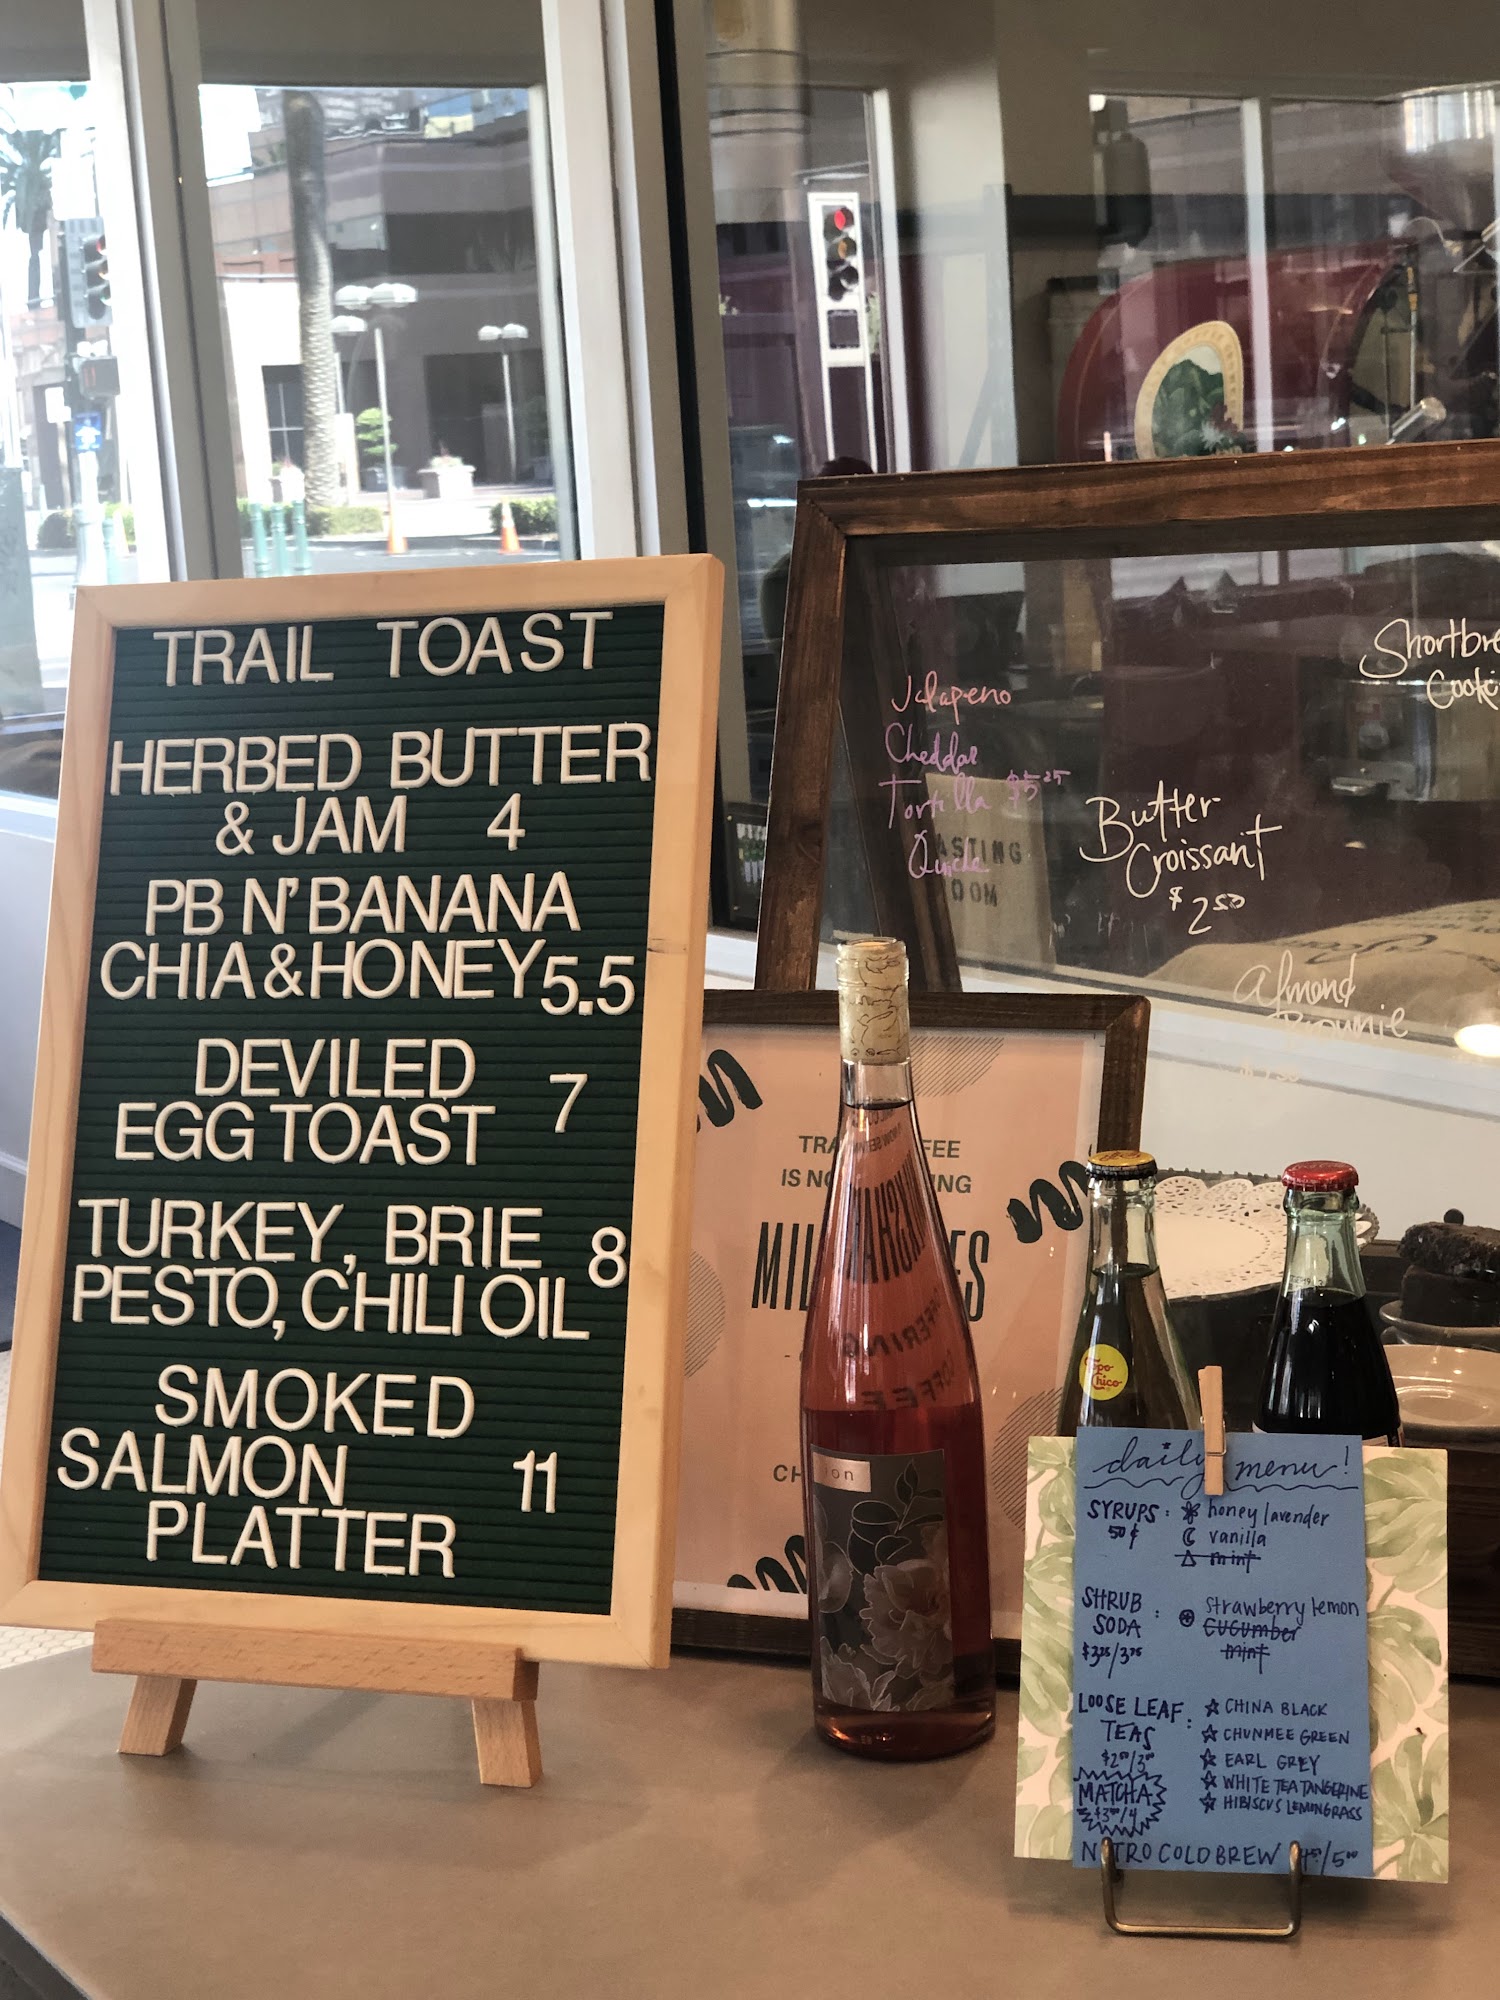 TRAIL TOAST
HERBED BUTTER
& JAM 4
PB N' BANANA
CHIA & HONEY 5.5
DEVILED
EGG TOAST 7
TURKEY, BRIE 8
PESTO, C'HILI OIL
SMOKED
SALMON 11
PLATTER
Jalapeno
Cheddar
Tortilla $5.25
Quiche
Shortbre
Cooki
Butter
Croissant
$2.50
Almond
Brownie
ASTING
OOM
TRA FEE
IS NO ING
MIL ES
CH
on
Topo
Chico
daily menu!
SYRUPS: honey lavender
50¢ vanilla
mint
SHRUB strawberry lemon
SODA: cucumber
$3.25/3.75 mint
LOOSE LEAF CHINA BLACK
TEAS: CHUNMEE GREEN
$2.50/3.00 EARL GREY
MATCHA WHITE TEA TANGERINE
$3.50/4 HIBISCUS LEMONGRASS
NITRO COLD BREW 4.50/5.00